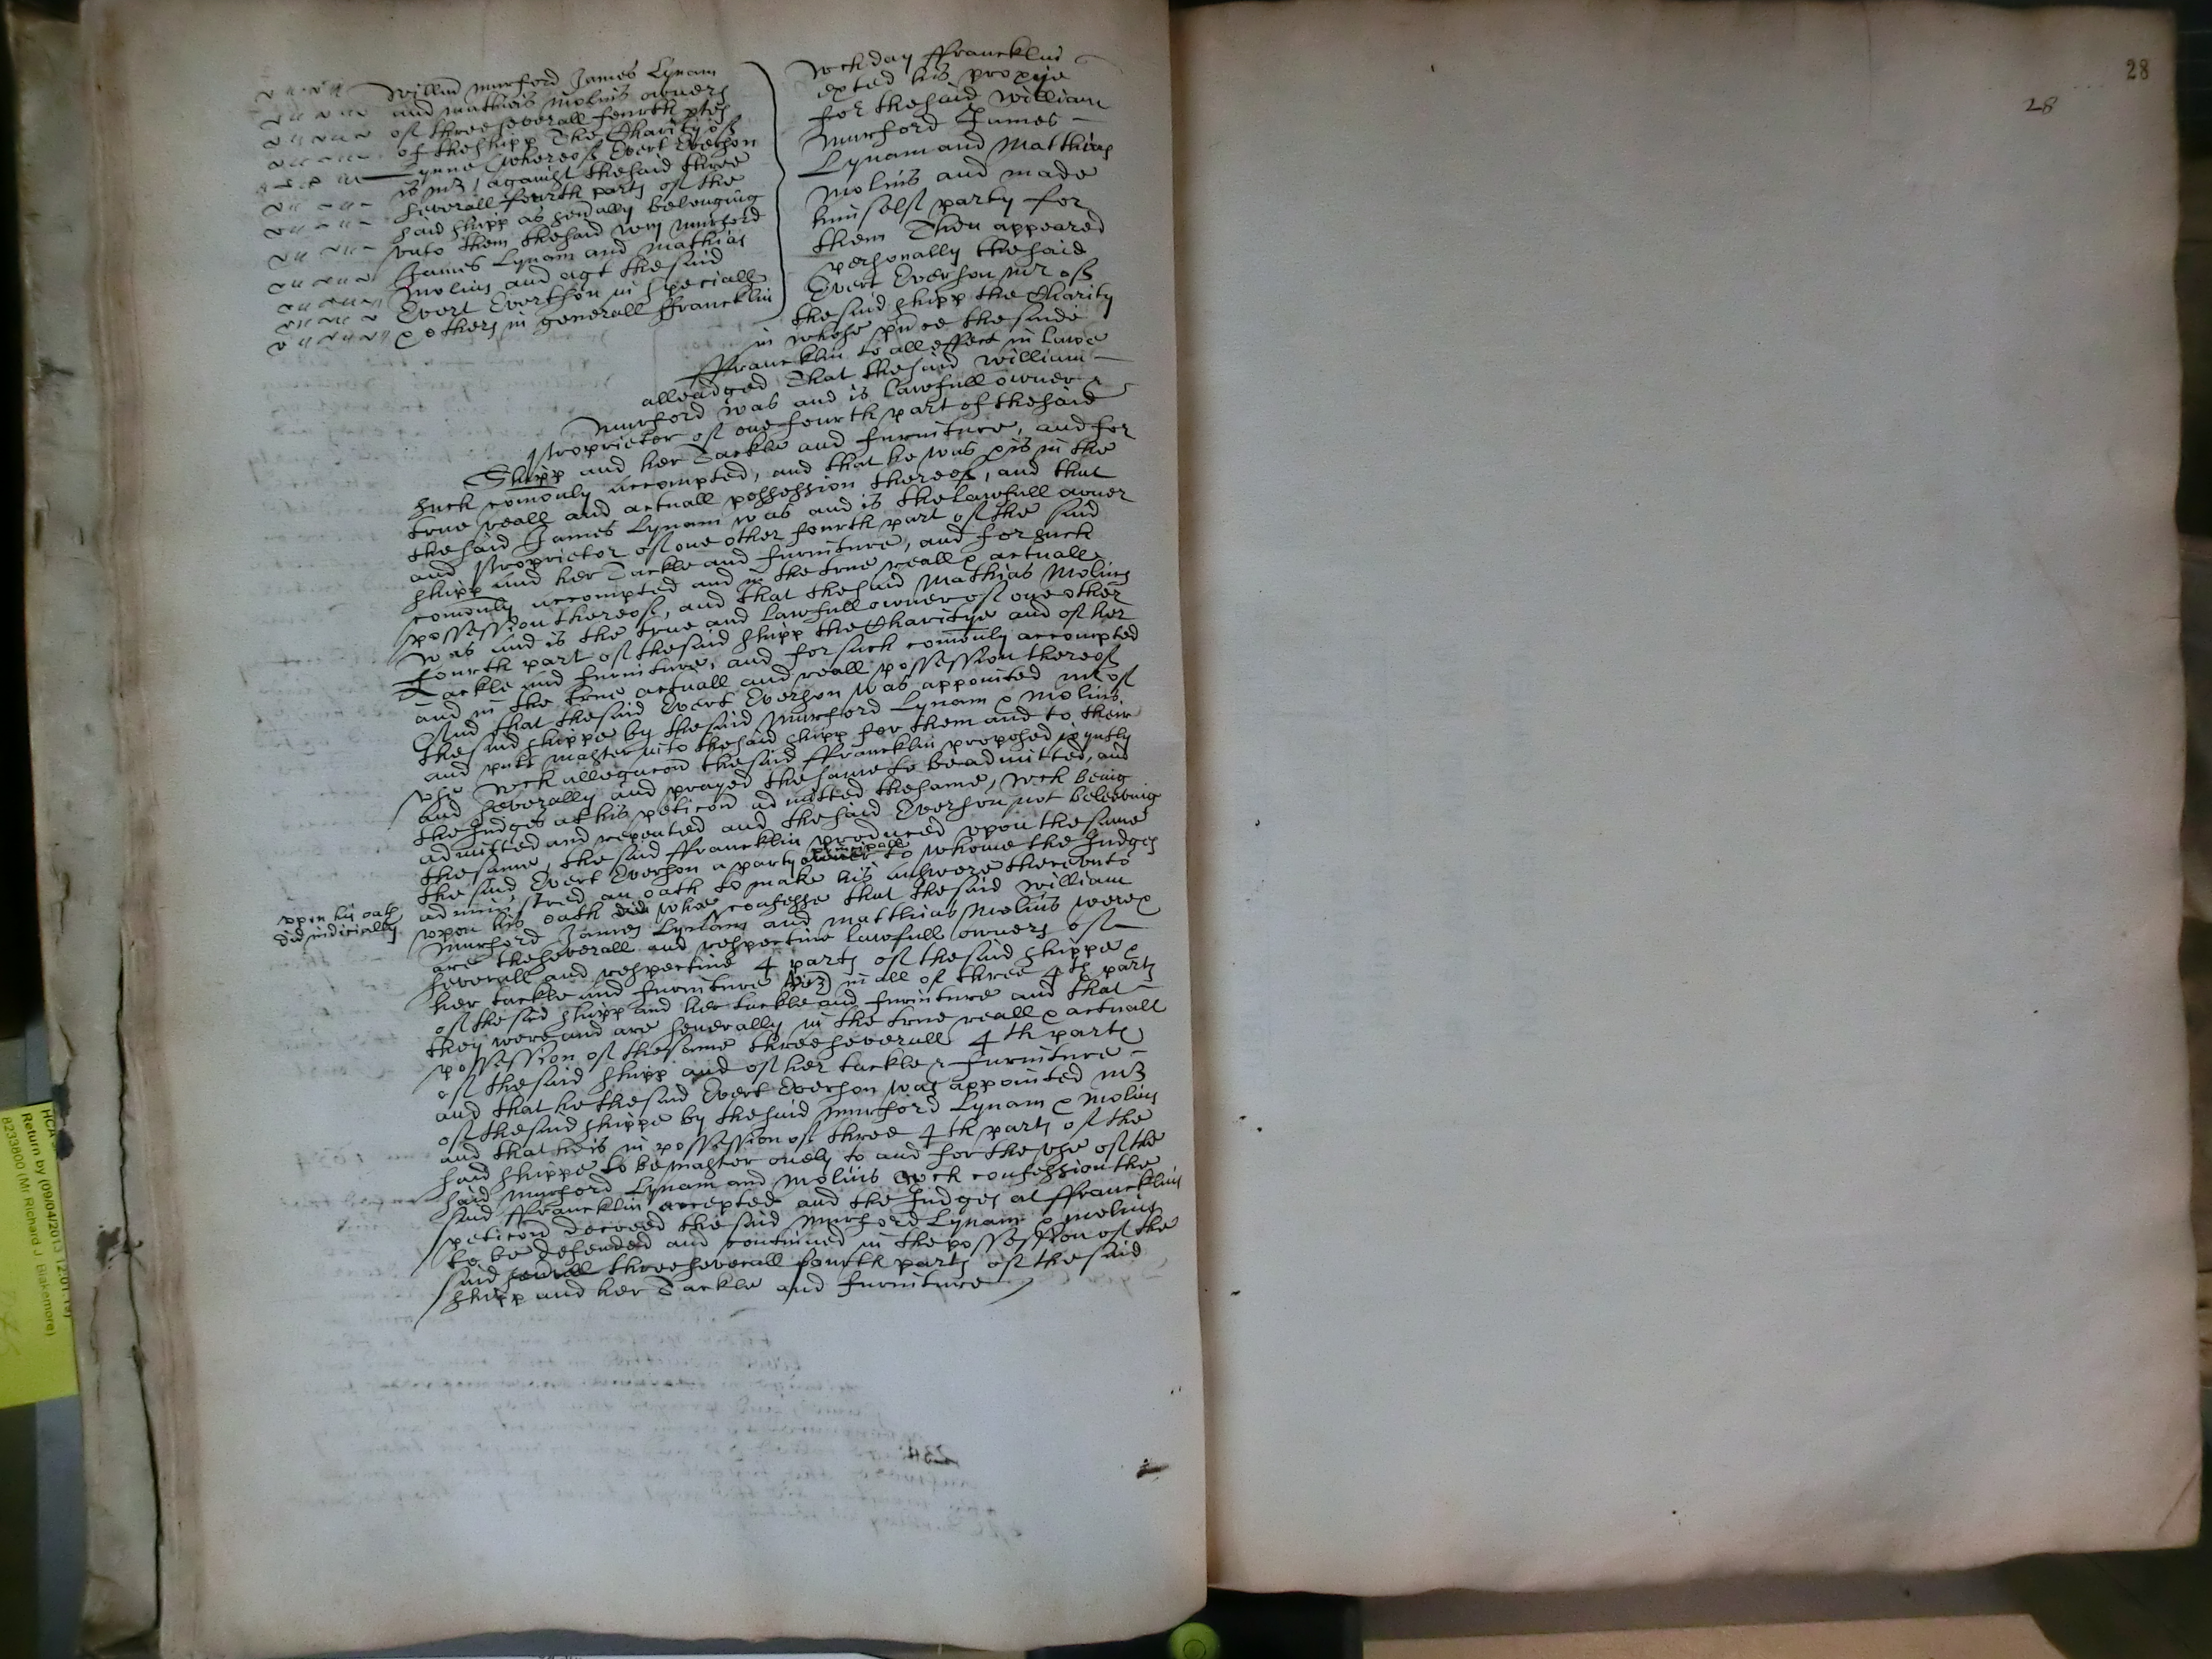 Willm Murford James Lynam
and Mathias Molins owners
of three severall fourth ptes
of the shipp The Charity of
Lynne (whereof Evert Everson
is mr) against the said three
severall fourth parts of the
said shipp as sevally belonging
unto them the said Wm Murford
James Lynam and Mathias
Molins and agt the said
Evert Everson in speciall
& others in generall ffrancklin
Wch day ffrancklin
exted his proxye
for the said William
Murford James
Lynam and Matthias
Molins and made
himself party for
them Then appeared
personally the said
Evert Everson mr of
the said shipp the Charity
in whose pnce the saide
ffrancklin to all effect in Lawe
alleadged That the said William
Murford was and is lawfull owner &
Proprietor of one fourth part of the said
Shipp and her Tackle and furniture, and for
such comonly accompted, and that he was & is in the
true reall and actuall possession thereof, and that
the said James Lynam was and is the lawfull owner
and Proprietor of one other fourth part of the said
shipp and her Tackle and furniture, and for such
comonly accompted and in the true reall & actuall
possession thereof, and that the said Mathias Molins
was and is the true and lawfull owner of one other
fourth part of the said shipp the Charitye and of her
Tackle and furniture, and for such comonly accompted
and in the true actuall and reall possession thereof
And that the said Evert Everson was appointed mr of
the said shippe by the said Murford Lynam & Molins
and putt master into the said shipp for them and to their
use wch allegacon the said ffrancklin proposed ioyntly
and severally and prayed the same to be admitted, and
the Judges at his peticon admitted the same, wch being
admitted and repeated and the said Everson not beleeving
the same, the said ffrancklin produced upon the same
the said Evert Everson a party principall to whome the Judges
administred an oath to make his answere thereunto
upon his oath
did iudicially
upon his oath did who confesse that the said William
Murford James Lynam and Matthias Molins were &
are the severall and respective lawfull owners of
severall and respective 4 parts of the said shippe &
her tackle and furniture (vizt) in all of three 4th parts
of the said shipp and her tackle and furniture and that
they were and are severally in the true reall & actuall
possession of the same three severall 4th parts
of the said shipp and of her tackle & furniture
and that he the said Evert Everson was appointed mr
of the said shippe by the said Murford Lynam & Molins
and that he is in possession of three 4th parts of the
said shippe to be master onely to and for the use of the
said Murford Lynam and Molins wch confession the
said ffrancklin accepted and the Judges at ffrancklins
peticon decreed the said Murford Lynam & Molins
to be defended and continued in the possession of the
said severall three severall fourth parts of the said
shipp and her Tackle and furniture
28
28
HCA
Return by (09/04/2013 12:01:19)
8233800 (Mr Richard J Blakemore)